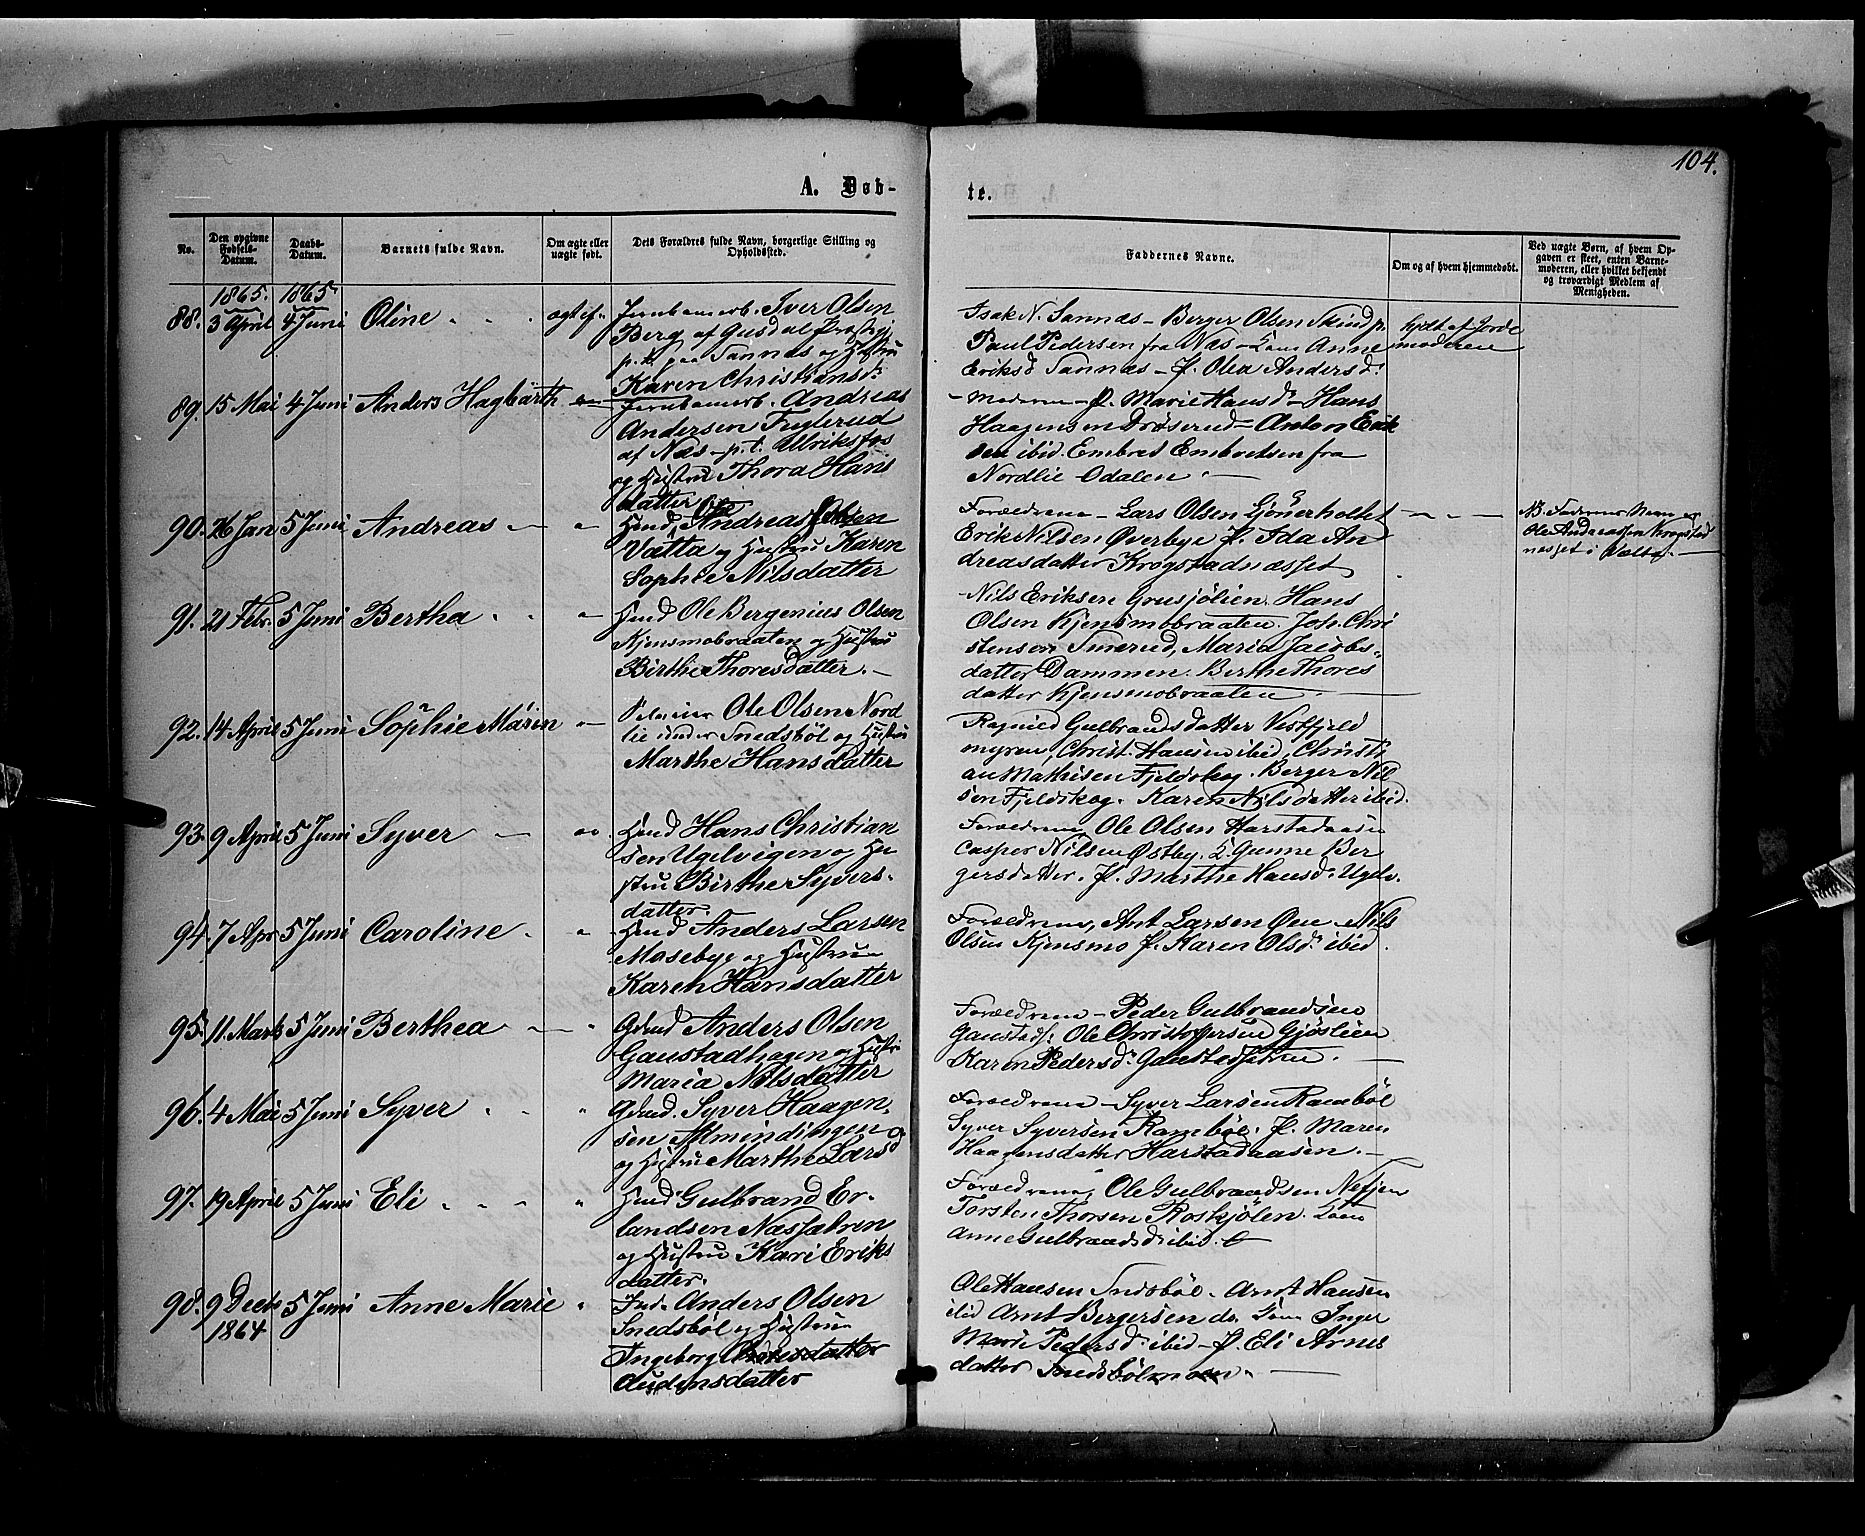 104.
A. Døb-
te.
No.
Den opgivne
Fødsels-
Datum.
Daabs-
Datum.
Barnets fulde Navn.
Om ægte eller
uægte født.
Dets Forældres fulde Navn, borgerlige Stilling og
Opholdssted.
Faddernes Navne.
Om og af hvem hjemmedøbt.
Ved uægte Børn, af hvem Op-
gaven er skeet, enten Barne-
moderen, eller hvilket bekjendt
og troværdigt Medlem af
Menigheden.
1865. 1865.
88. 3 April 4 Juni Oline
Iver Olsen
Berg af Gusdal
p.t. paa Sannæs og Hustru
Karen Christiansd.
Isak N. Sannæs - Berger Olsen
Paul Pedersen fra Næs - Anne
Eriksd Sannæs - P. Olea Andersd.
hjdt af Jorde
moderen
89. 15 Mai 4 Juni Anders Hagbarth
Jernbanearb. Andreas
Andersen Fuglerud
af Næs - p.t. Ulriksfos
og Hustru Thora Hans
datter
Moderen - P. Marie Hansd. - Hans
Haagensen Drøserud - Anton Erik
sen ibid. Embret Embretsen fra
Nordlie Odalen. -
90. 26 Jan 5 Juni Andreas
Andreas Olsen
Vatta og Hustru Karen
Sophie Nilsdatter
Forældrene - Lars Olsen Gjønerholtet
Erik Nilsen Øverbye P. Ida An
dreasdatter Krogstadnæsset
NB. Faderens Navn er
Ole Andreassen Krogstad
næsset i
91. 21 Febr. 5 Juni Bertha
Hmd Ole Bergenius Olsen
Kjensmobraaten og Hustru
Birthe Thoresdatter. -
Nils Eriksen Grusjølien. Hans
Olsen Kjensmobraaten. Joh. Chri
stensen Smerud, Maria Jacobs-
datter Dammen. Berthe Thores
datter Kjensmobraaten
92. 14 April 5 Juni Sophie Maren
Ole Olsen Nord
lie under Snedsbøl og Hustru
Marthe Hansdatter
Ragnild Gulbrandsdatter Vestfjeld
myren, Christ. Hansen ibid, Christi
an Mathisen Fjeldskog. Berger Nil
sen Fjeldskog. Karen Nilsdatter ibid.
93. 9 April 5 Juni Syver
Hmd Hans Christian
sen Ugelvigen og Hu
stru Birthe Syvers-
datter.
Forældrene, Ole Olsen Harstadaasen
Casper Nilsen Østby. Gunne Ber
gersdatter. P. Marthe Hansd. Ugelv.
94. 7 Apr. 5 Juni Caroline
Hmd Anders Larsen
Mosebye og Hustru
Karen Hansdatter
Forældrene, Ant Larsen Øen. Nils
Olsen Kjensmo P. Karen Olsd. ibid.
95. 11. Marts 5 Juni Berthea
Gbmd Anders Olsen
Gaustadhagen og Hustru
Maria Nilsdatter
Forældrene - Peder Gulbrandsen
Gaustadh. Ole Christophersen Gjøslien
Karen Pedersd.
96. 4 Mai 5 Juni Syver
Gbmd. Syver Haagen-
sen Almindingen
og Hustru Marthe Larsd
Forældrene - Syver Larsen Rambøl
Syver Syversen Rambøl. P. Maren
Haagensdatter Harstadaasen. -
97. 19 April 5 Juni Eli
Hmd Gulbrand Er-
landsen Næssætren
og Hustru Kari Eriks
datter.
Forældrene, Ole Gulbrandsen
Torsten Thorsen Roskjølen.
Anne Gulbrandsd. ibid.
98. 9 Decb 5 Juni Anne Marie
1864
Ind. Anders Olsen
Snedsbøl og Hustru
Ingeborg
Audensdatter
Ole Hansen Snedsbøl. Arnt Hansen
ibid Arnt Bergersen do. Inger
Marie Pedersd. ibid - P. Eli Arnes
datter Snedsbølmoen. -